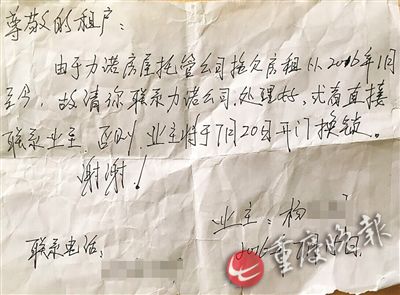 尊敬的租户：
由于力诺房屋托管公司拖欠房租从2016年1月
至今，故请你联系力诺公司处理好，或者直接
联系业主，否则，业主将于7月20日开门换锁。
谢谢！
业主：杨
联系电话：
2016
日
重庆晚报